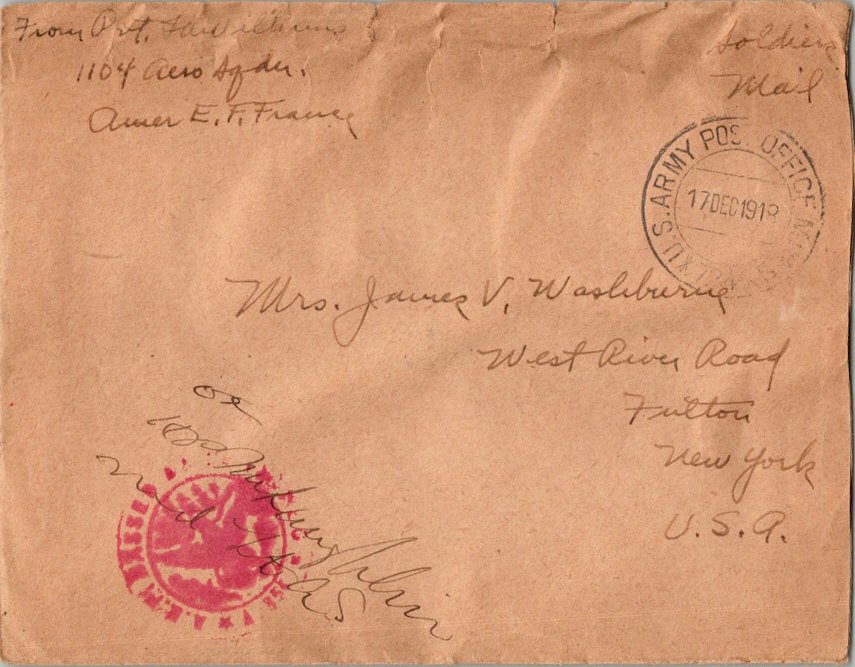 From Pvt. Williams
1104 Aero Sqdn.
Amer E. F. France
Soldiers
Mail
U.S. ARMY POST OFFICE
17 DEC 1918
Mrs. James V. Washburne
West River Road
Fulton
New York
U. S. A.
OK
McLaughlin
PASSED A.E.F.